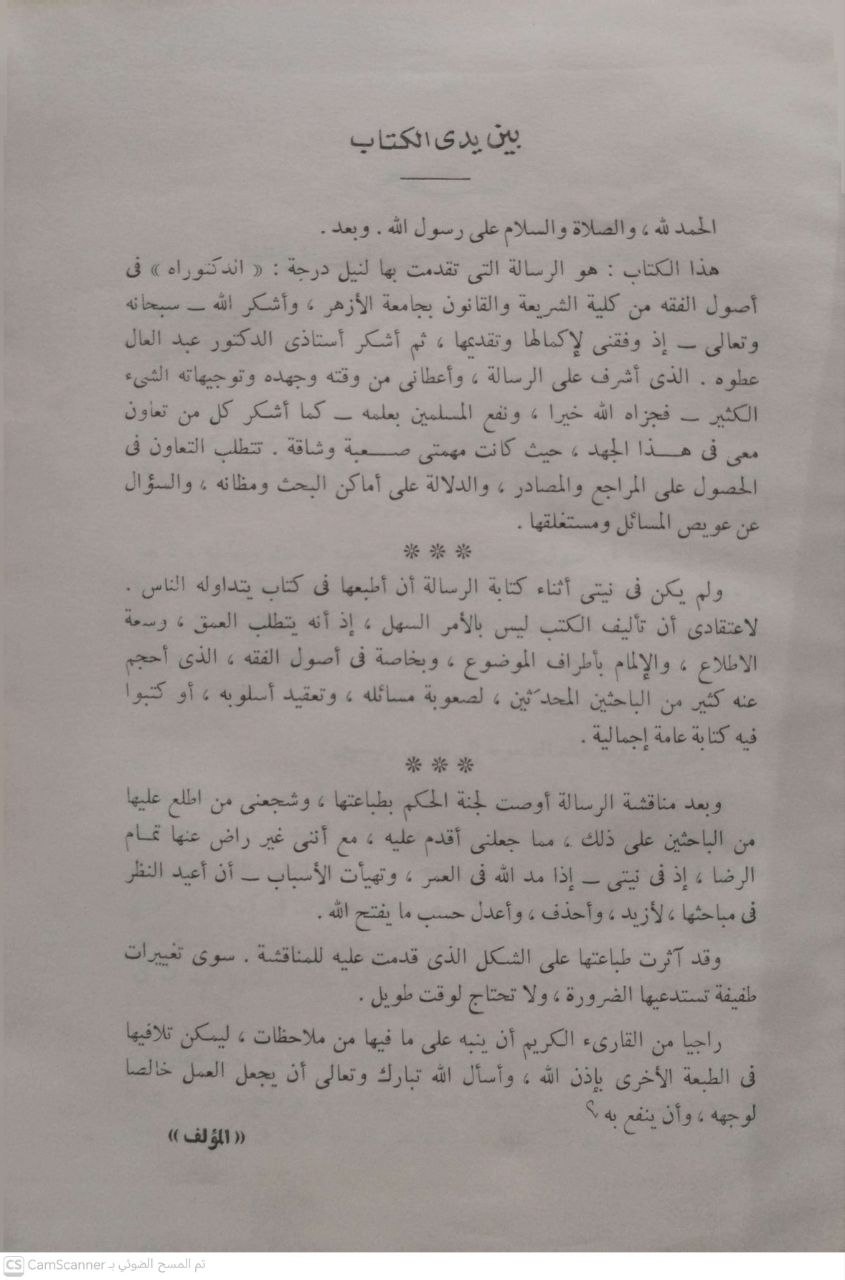 بين يدى الكتاب
الحمد لله ، والصلاة والسلام على رسول الله . وبعد .
هذا الكتاب : هو الرسالة التى تقدمت بها لنيل درجة : « الدكتوراه » فى
أصول الفقه من كلية الشريعة والقانون بجامعة الأزهر ، وأشكر الله ــ سبحانه
وتعالى ــ إذ وفقنى لإكمالها وتقديمها ، ثم أشكر أستاذى الدكتور عبد العال
عطوه . الذى أشرف على الرسالة ، وأعطانى من وقته وجهده وتوجيهاته الشىء
الكثير ــ فجزاه الله خيرا ، ونفع المسلمين بعلمه ــ كما أشكر كل من تعاون
معى فى هــذا الجهد ، حيث كانت مهمتى صــعبة وشاقة . تتطلب التعاون فى
الحصول على المراجع والمصادر ، والدلالة على أماكن البحث ومظانه ، والسؤال
عن عويص المسائل ومستغلقها .
❊ ❊ ❊
ولم يكن فى نيتى أثناء كتابة الرسالة أن أطبعها فى كتاب يتداوله الناس .
لاعتقادى أن تأليف الكتب ليس بالأمر السهل ، إذ أنه يتطلب العمق ، وسعة
الاطلاع ، والإلمام بأطراف الموضوع ، وبخاصة فى أصول الفقه ، الذى أحجم
عنه كثير من الباحثين المحدَثين ، لصعوبة مسائله ، وتعقيد أسلوبه ، أو كتبوا
فيه كتابة عامة إجمالية .
❊ ❊ ❊
وبعد مناقشة الرسالة أوصت لجنة الحكم بطباعتها ، وشجعنى من اطلع عليها
من الباحثين على ذلك ، مما جعلنى أقدم عليه ، مع أننى غير راض عنها تمـام
الرضا ، إذ فى نيتى ــ إذا مد الله فى العمر ، وتهيأت الأسباب ــ أن أعيد النظر
فى مباحثها ، لأزيد ، وأحذف ، وأعدل حسب ما يفتح الله .
وقد آثرت طباعتها على الشكل الذى قدمت عليه للمناقشة . سوى تغييرات
طفيفة تستدعيها الضرورة ، ولا تحتاج لوقت طويل .
راجيا من القارىء الكريم أن ينبه على ما فيها من ملاحظات ، ليمكن تلافيها
فى الطبعة الأخرى بإذن الله ، وأسأل الله تبارك وتعالى أن يجعل العمل خالصا
لوجهه ، وأن ينفع به ؟
« المؤلف »
CS CamScanner تم المسح الضوئي بـ